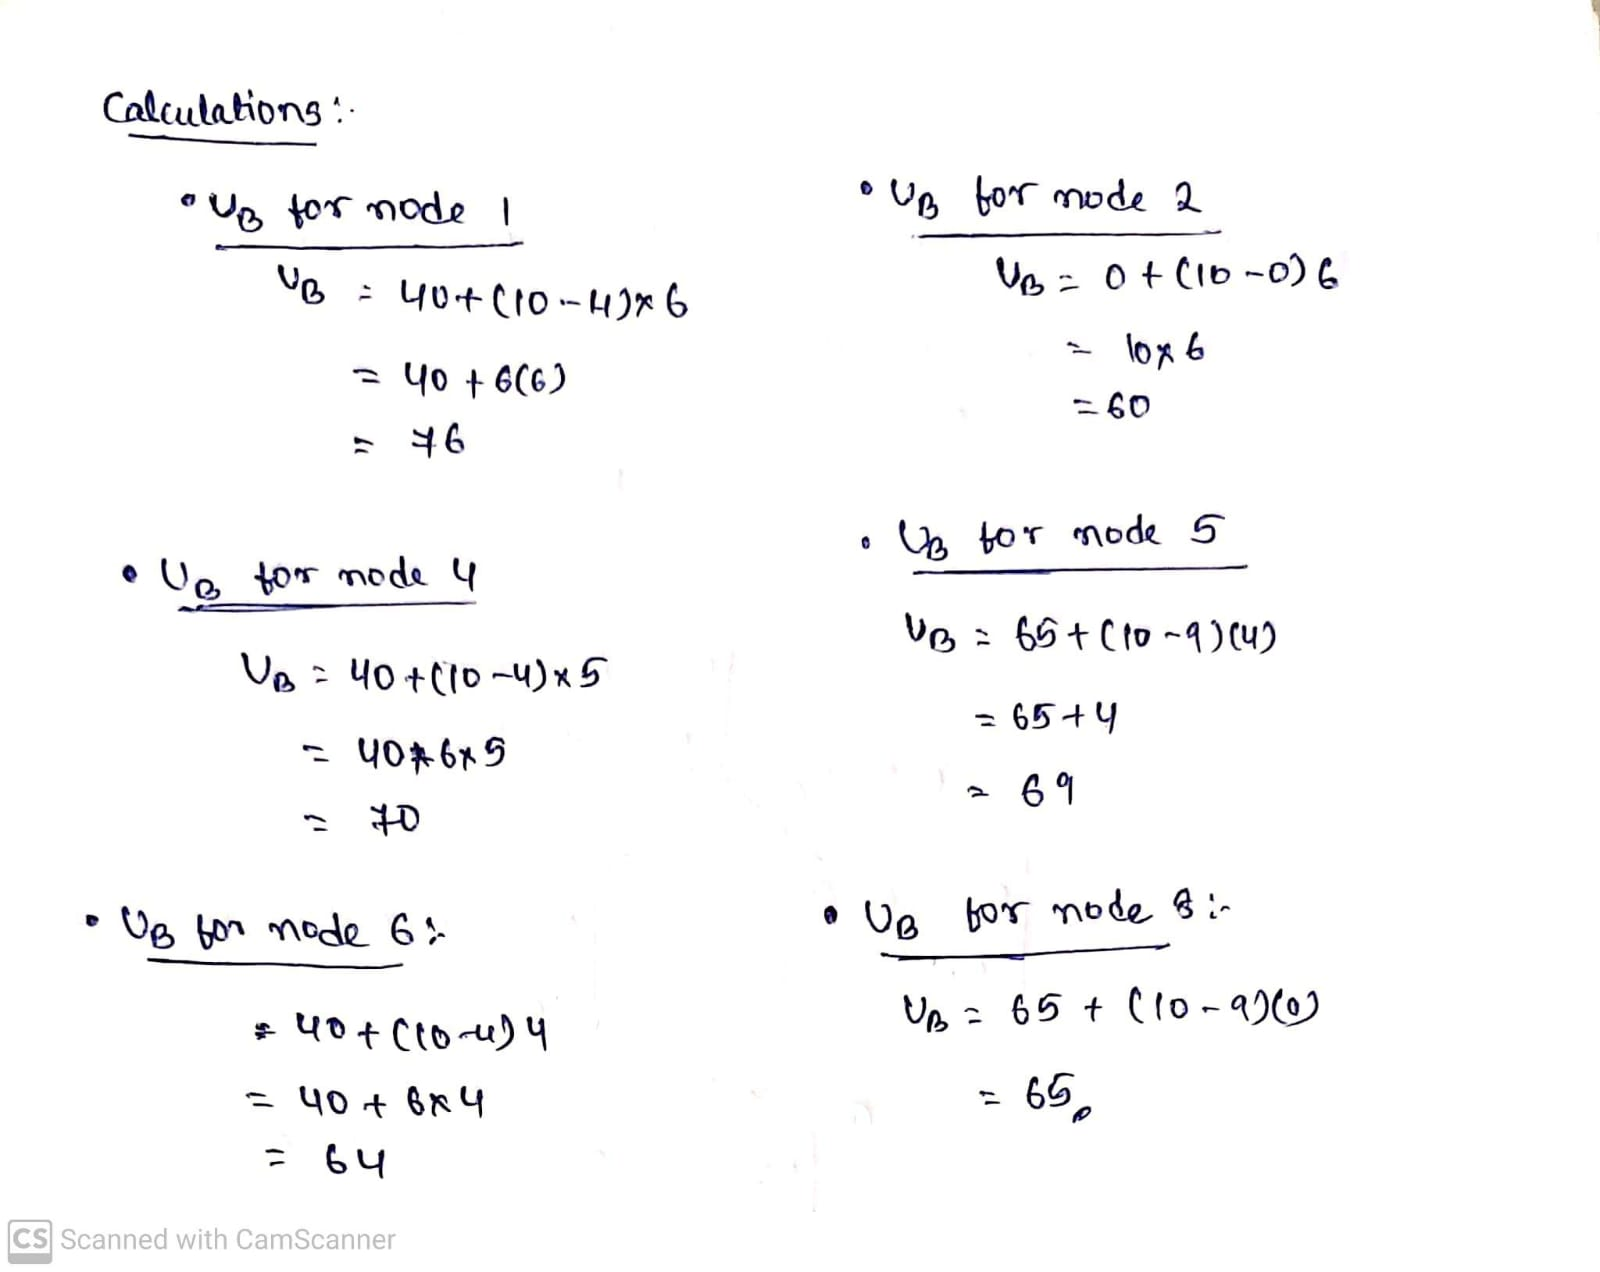 Calculations :-
• UB for node 1
UB = 40+(10-4)×6
= 40 + 6(6)
= 76
• UB for node 2
UB = 0 + (10-0) 6
= 10×6
= 60
• UB for node 4
UB = 40+(10-4)×5
= 40+6×5
= 70
• UB for node 5
UB = 65+(10-9)(4)
= 65+4
= 69
• UB for node 6:-
= 40+(10-4)4
= 40+6×4
= 64
• UB for node 8:-
UB = 65 + (10-9)(0)
= 65
CS Scanned with CamScanner